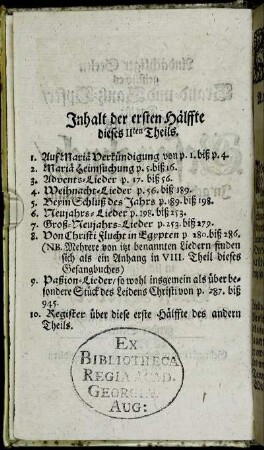 Inhalt der ersten Hälffte
dieses IIten Theils.
1. Auf Mariä Verkündigung von p. 1. biß p. 4.
2. Mariä Heimsuchung p. 5. biß 16.
3. Advents-Lieder p. 17. biß 56.
4. Weihnacht-Lieder p. 56. biß 189.
5. Beym Schluß des Jahrs p. 89. biß 198.
6. Neujahrs-Lieder p. 198. biß 253.
7. Groß-Neujahrs-Lieder p. 253. biß 279.
8. Von Christi Flucht in Egypten p. 280. biß 286.
(NB. Mehrere von itzt benannten Liedern finden
sich als ein Anhang in VIII. Theil dieses
Gesangbuches)
9. Paßion-Lieder/ so wohl insgemein als über be-
sondere Stück des Leidens Christi von p. 287. biß
945.
10. Register über diese erste Hälffte des andern
Theils.
EX
BIBLIOTHECA
REGIA ACAD.
GEORGIÆ
AUG: